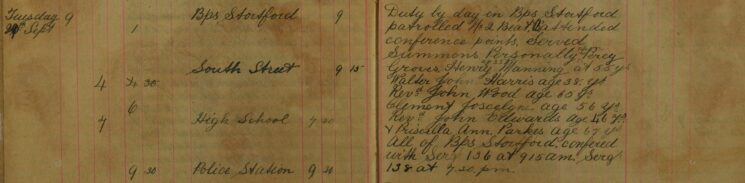 Tuesday 9 Bps Stortford 9
29th Sept 1
South Street 9 15
4 4 30
6
7 High School 7 30
9 30 Police Station 9 30
Duty by day in Bps Stortford
patrolled No 2 Beat, Attended
conference points, Served
Summons Personally Percy
Groves Henry Manning at 53 yrs
Walter John Harris age 38 yrs
Revd John Wood age 63 yrs
Clement Joscelyn age 56 yrs
Revd John Edwards age 56 yrs
& Priscilla Ann Parkes age 67 yrs
All of Bps Stortford. confered
with Serg 136 at 9 15 am. Serg
138 at 7.30 pm.